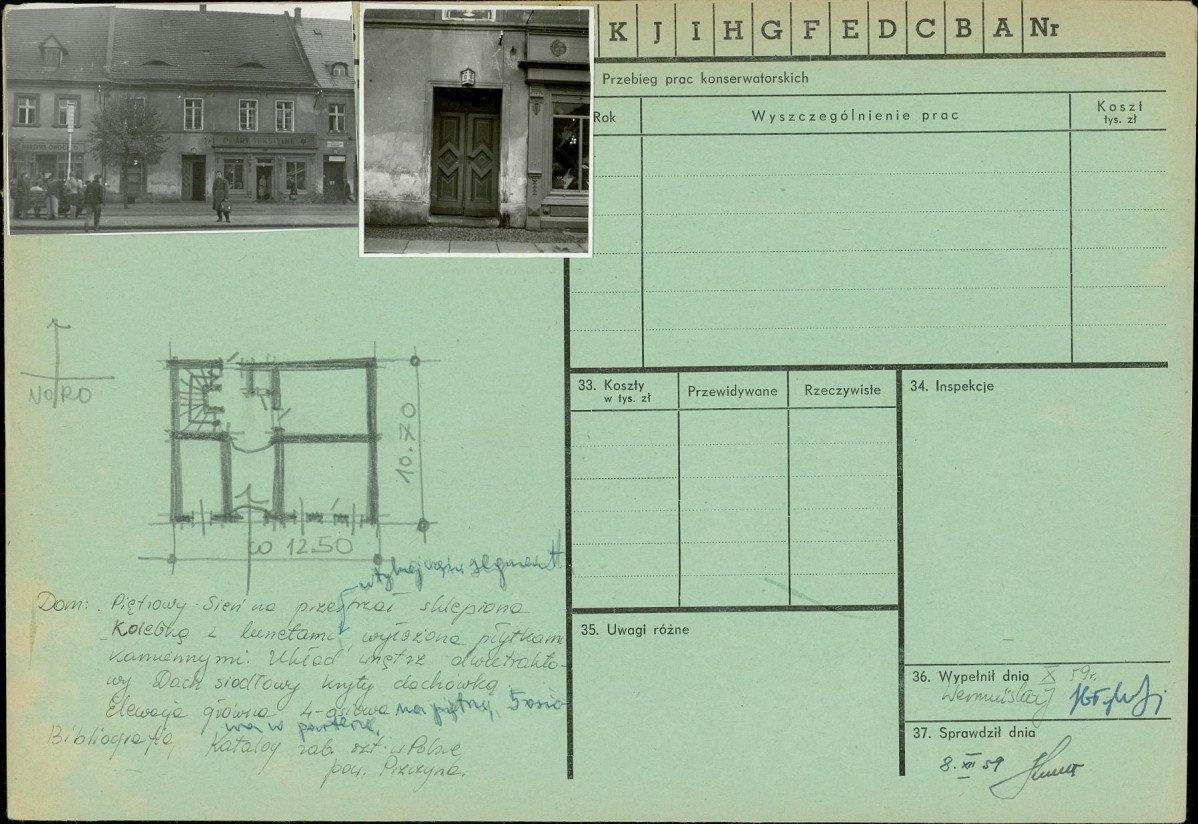 K J I H G F E D C B A Nr
Przebieg prac konserwatorskich
Rok
Wyszczególnienie prac
Koszt
tys. zł
33. Koszty
w tys. zł
Przewidywane
Rzeczywiste
34. Inspekcje
35. Uwagi różne
36. Wypełnił dnia X 59r.
37. Sprawdził dnia
8. XII 59
10.70
12.50
w tylnej części
Dom: Piętrowy. Sień na przestrzał sklepiona
Kolebką z lunetami, wyłożona płytkam
kamiennymi. Układ wnętrz dwutrakto-
wy Dach siodłowy kryty dachówką.
Elewacja główna 4-osiowa na piętrze, 5 osio
wa w parterze,
Bibliografia, Katalog zab. szt. w Polsce
pow. Pszczyna.